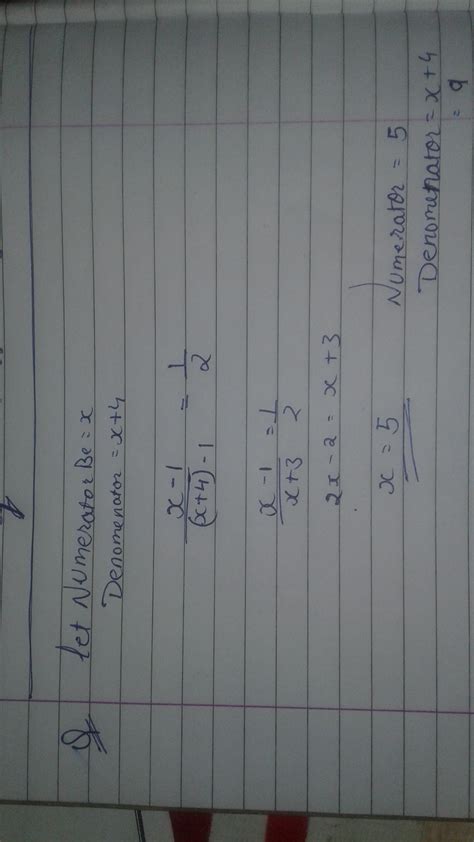 Q let Numerator Be = x
Denomenator = x+4
x - 1 / (x+4) - 1 = 1 / 2
x - 1 / x + 3 = 1 / 2
2x - 2 = x + 3
x = 5
Numerator = 5
Denomenator = x + 4
= 9